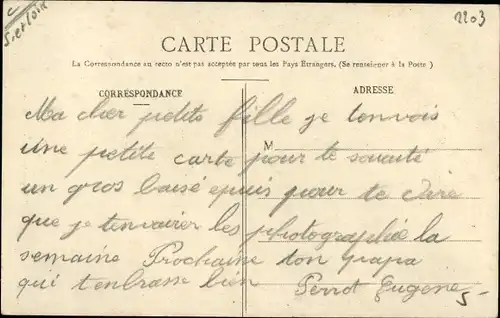 S. et Loire
2203
CARTE POSTALE
La Correspondance au recto n'est pas acceptée par tous les Pays Étrangers. (Se renseigner à la Poste.)
CORRESPONDANCE
ADRESSE
M
Ma cher petite fille je tenvois
une petite carte pour te souaité
un gros baisé epuis pour te dire
que je tenvairer les photographie la
semaine Prochaine ton papa
qui t'enbrasse bien Perrot Eugene
5-